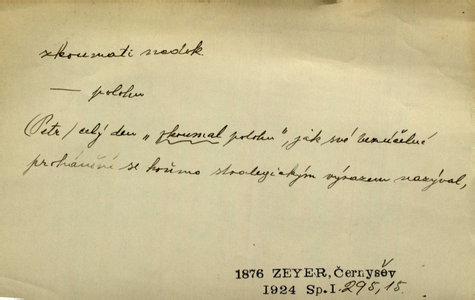 zkoumati nedok.
— polohu
Petr / celý den „zkoumal polohu", jak své bezúčelné
prohánění se koňmo strategickým výrazem nazýval,
1876 ZEYER, Černyšëv
1924 Sp. I. 295, 15.